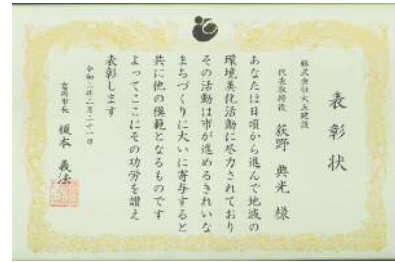 表彰状
代表取締役 荻野 典光 様
あなたは日頃から進んで地域の
環境美化活動に尽力されており
その活動は市が進めるきれいな
まちづくりに大いに寄与すると
共に他の模範となるものです
よってここにその功労を讃え
表彰します
榎本 義法